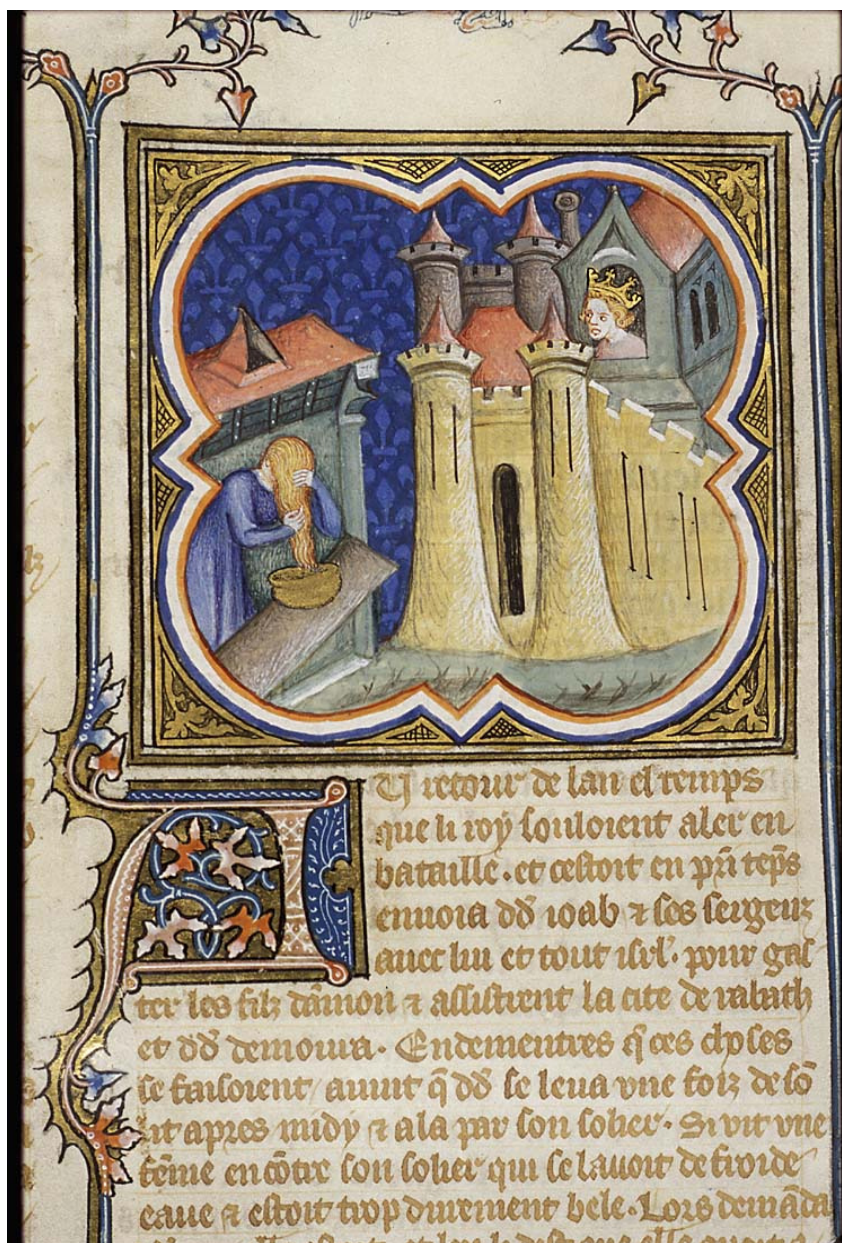 AU retour de lan el temps
que li roy souloient aler en
bataille. et cestoit en prin teps
enuoia dd ioab ⁊ ses sergenz
auec lui et tout isrl. pour gas
ter les filz damon ⁊ assistrent la cite de rabath
et dd demoura. Endementres q̄ ces choses
se faisoient auint q̄ dd se leua vne foiz de sō
lit apres midy ⁊ ala par son solier. Si vit vne
fēme encōtre son solier qui se lauoit de froide
eaue ⁊ estoit trop durement bele. Lors demāda